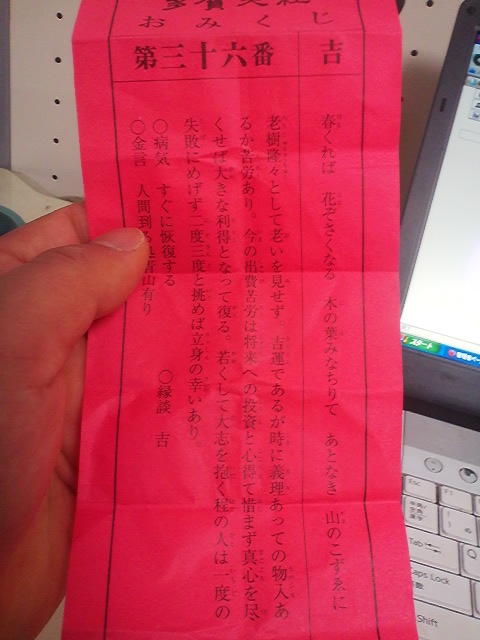 おみくじ
第三十六番
吉
春くれば 花ぞさくなる 木の葉みなちりて あとなき 山のこずゑに
老樹隆々として老いを見せず。吉運であるが時に義理あっての物入あ
るか苦労あり。今の出費苦労は将来への投資と心得て惜まず真心を尽
くせば大きな利得となって復る。若くして大志を抱く程の人は一度の
失敗にめげず二度三度と挑めば立身の幸いあり。
○病気 すぐに恢復する ○縁談 吉
○金言 人間到る 青山有り
スタート
Esc
F1
半角/
全角
漢字
Tab
Q
Caps Lock
Shift